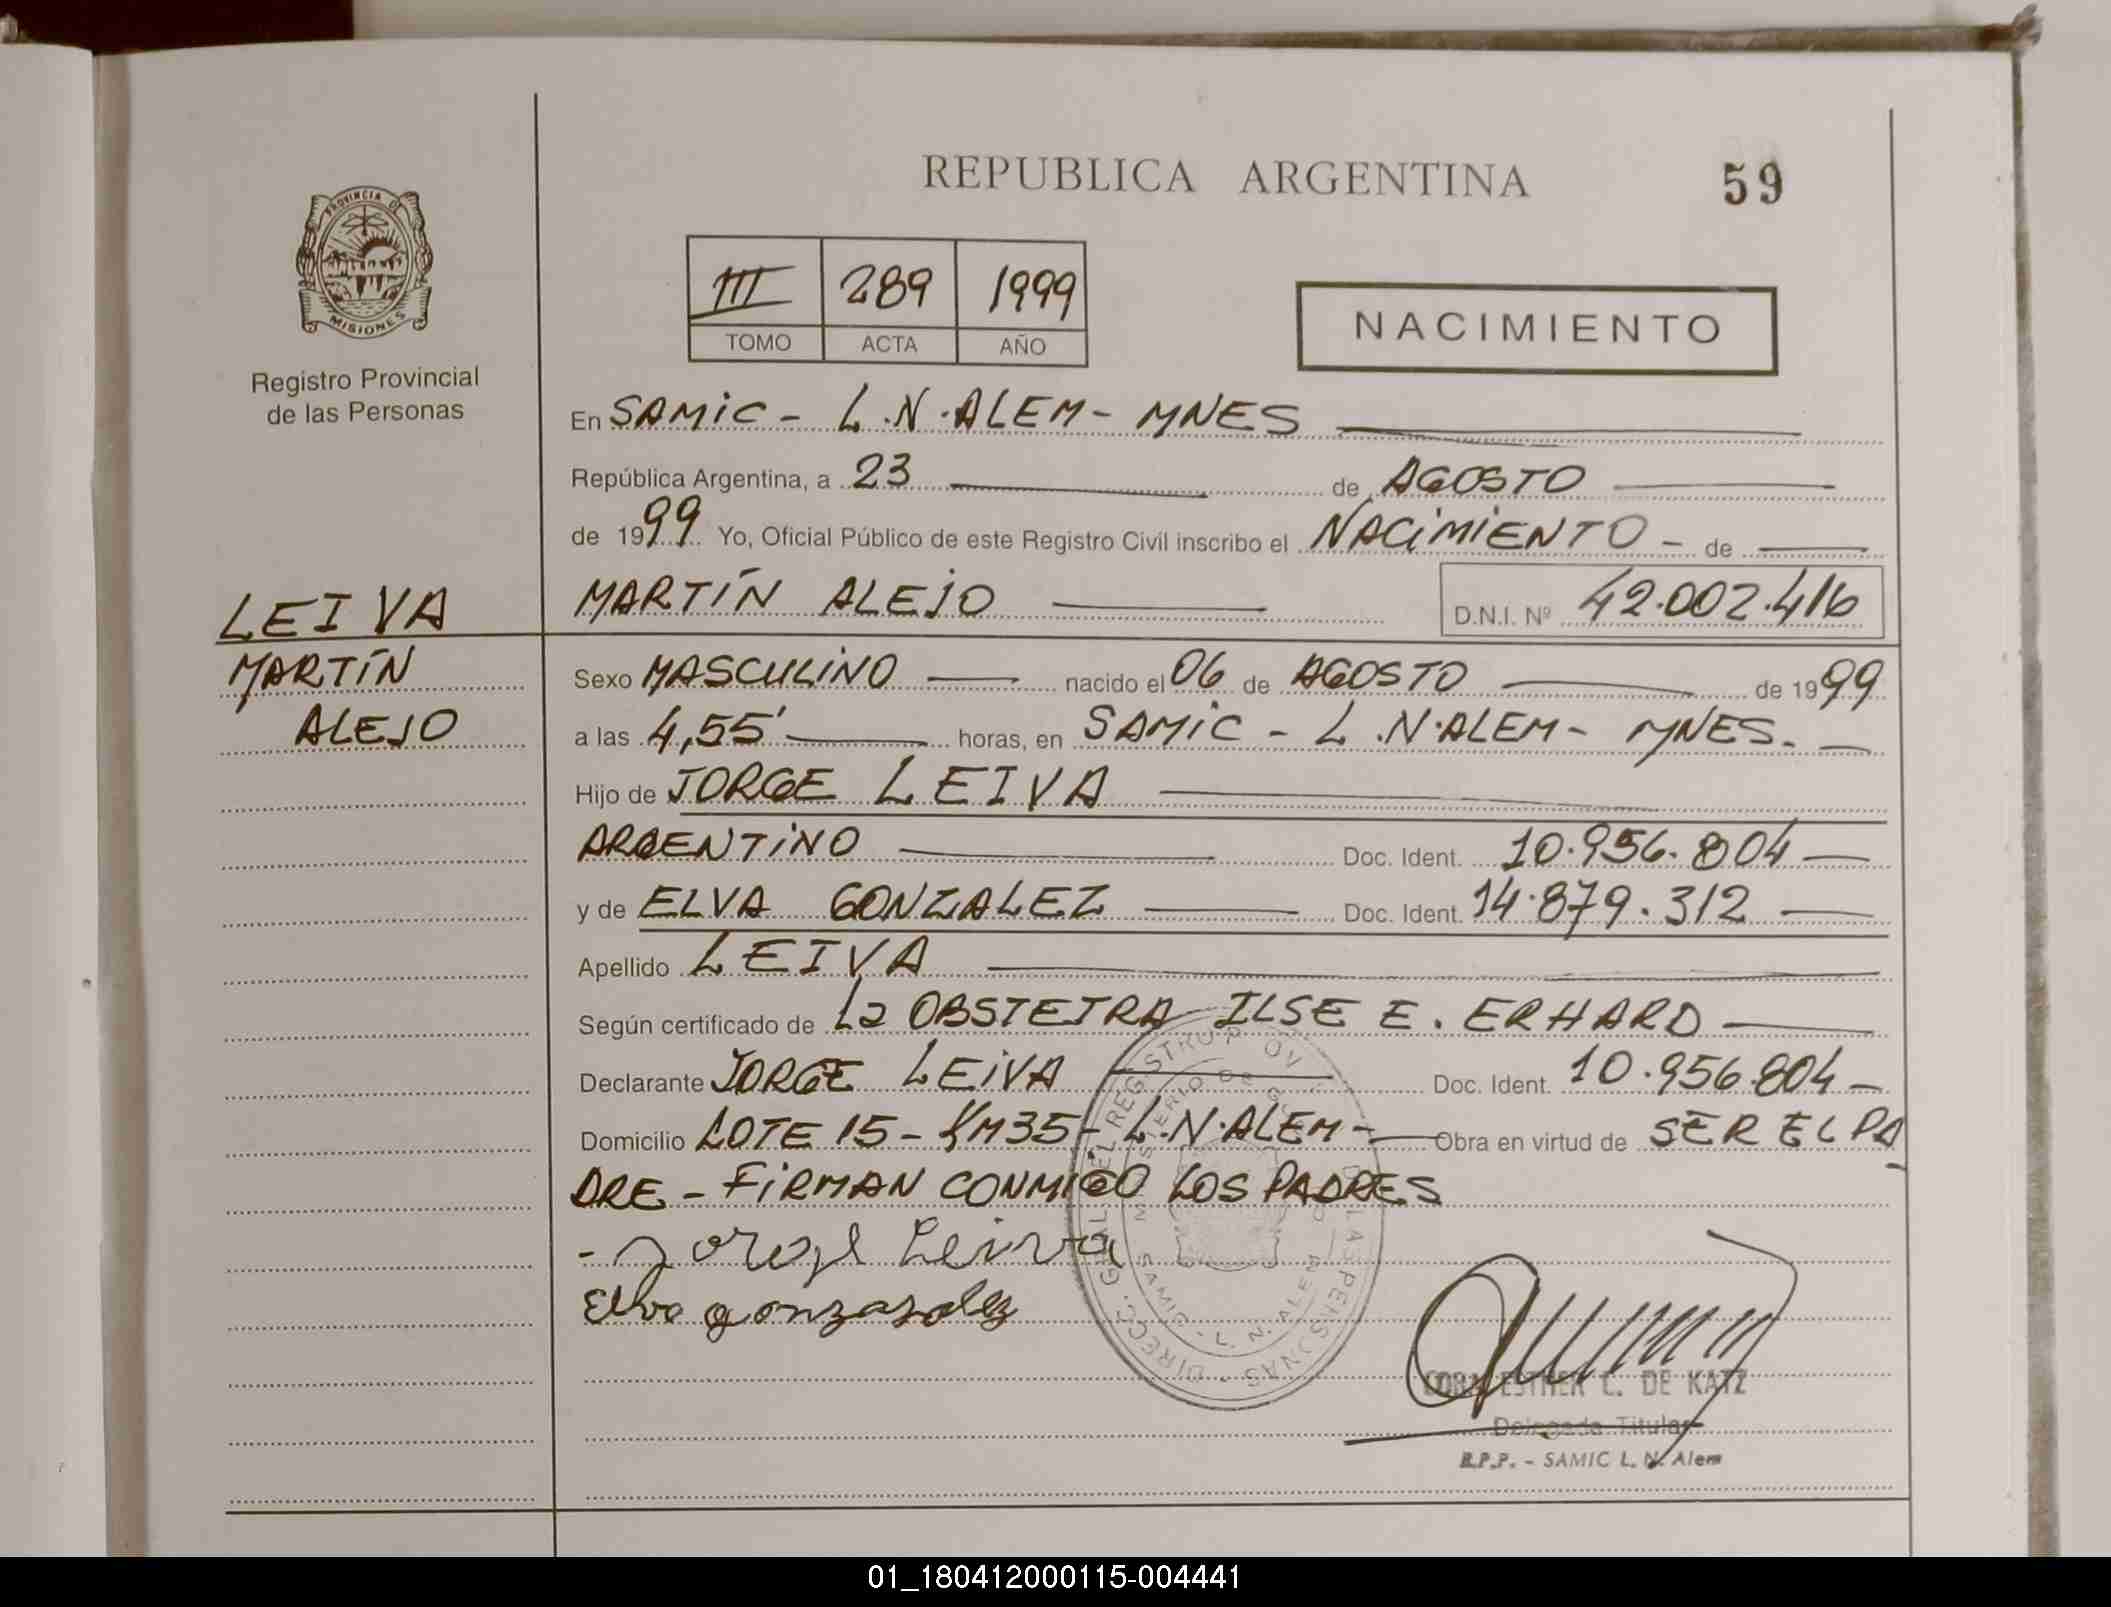 REPUBLICA ARGENTINA
59
PROVINCIA DE
MISIONES
Registro Provincial
de las Personas
III 289 1999
TOMO ACTA AÑO
NACIMIENTO
En SAMIC - L.N.ALEM - MNES
República Argentina, a 23 de AGOSTO
de 1999 Yo, Oficial Público de este Registro Civil inscribo el NACIMIENTO - de
MARTÍN ALEJO D.N.I. Nº 42.002.416
LEIVA
MARTÍN
ALEJO
Sexo MASCULINO nacido el 06 de AGOSTO de 1999
a las 4,55' horas, en SAMIC - L.N.ALEM - MNES.
Hijo de JORGE LEIVA
ARGENTINO Doc. Ident. 10.956.804
y de ELVA GONZALEZ Doc. Ident. 14.879.312
Apellido LEIVA
Según certificado de La OBSTETRA ILSE E. ERHARD
Declarante JORGE LEIVA Doc. Ident. 10.956.804
Domicilio LOTE 15 - KM35 - L.N.ALEM - Obra en virtud de SER EL PA
DRE - FIRMAN CONMIGO LOS PADRES
- Jorge Leiva
Elva gonzasalez
DIRECC. GRAL. DEL REGISTRO PROV. DE LAS PERSONAS
SAMIC - L. N. ALEM
ESTHER C. DE KATZ
Delegada Titular
R.P.P. - SAMIC L. N. Alem
01_180412000115-004441